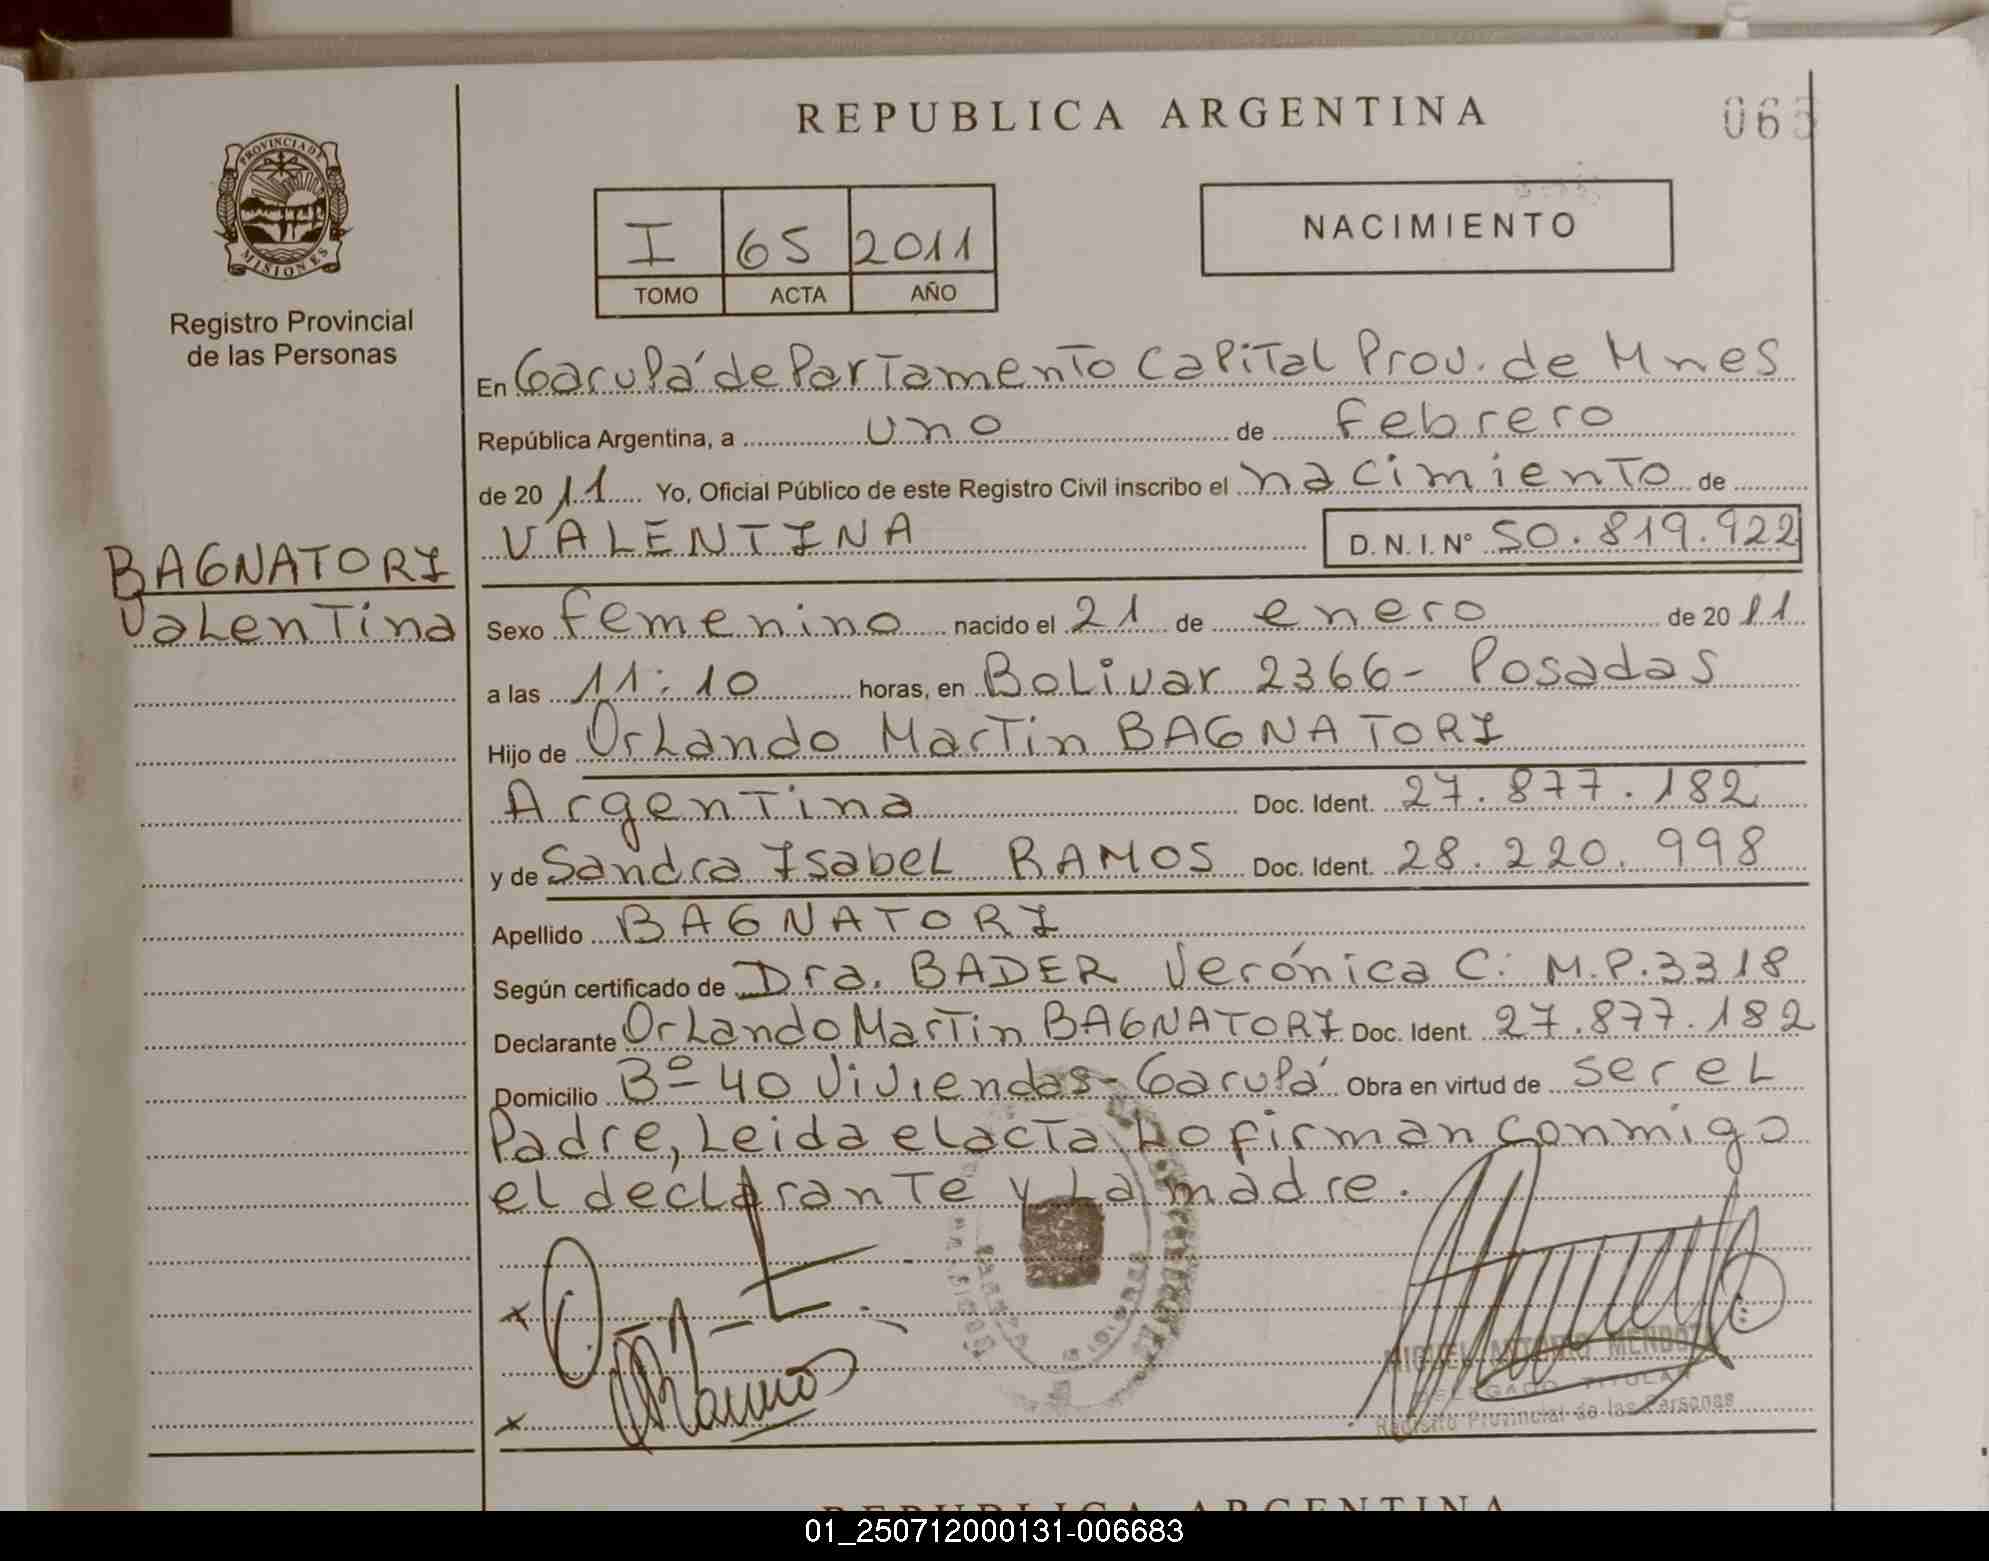 REPUBLICA ARGENTINA
065
PROVINCIA DE
MISIONES
Registro Provincial
de las Personas
I 65 2011
TOMO ACTA AÑO
NACIMIENTO
En Garupá departamento Capital Prov. de Mnes
República Argentina, a uno de febrero
de 2011 Yo, Oficial Público de este Registro Civil inscribo el nacimiento de
VALENTINA D.N.I. Nº 50.819.922
BAGNATORI
Valentina
Sexo femenino nacido el 21 de enero de 2011
a las 11:10 horas, en Bolivar 2366- Posadas
Hijo de Orlando Martin BAGNATORI
Argentina Doc. Ident. 27.877.182
y de Sandra Isabel RAMOS Doc. Ident. 28.220.998
Apellido BAGNATORI
Según certificado de Dra. BADER Verónica C: M.P.3318
Declarante Orlando Martin BAGNATORI Doc. Ident. 27.877.182
Domicilio Bº- 40 Viviendas- Garupá Obra en virtud de ser el
Padre, Leida el acta Lo firman conmigo
el declarante y La madre.
MIGUEL ANTONIO MENDOZA
DELEGADO TITULAR
Registro Provincial de las Personas
REPUBLICA ARGENTINA
01_250712000131-006683